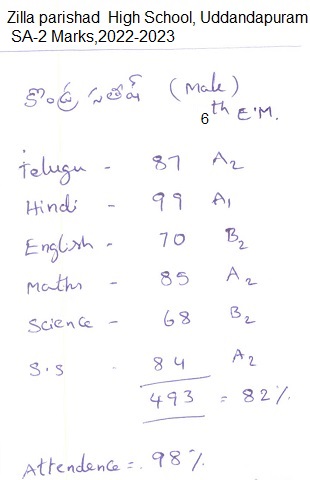 Zilla parishad High School, Uddandapuram
SA-2 Marks,2022-2023
సతీష్ (Male)
6th E.M.
Telugu - 87 A2
Hindi - 99 A1
English - 70 B2
Maths - 85 A2
Science - 68 B2
S.S - 84 A2
493 = 82%
Attendence = 98%